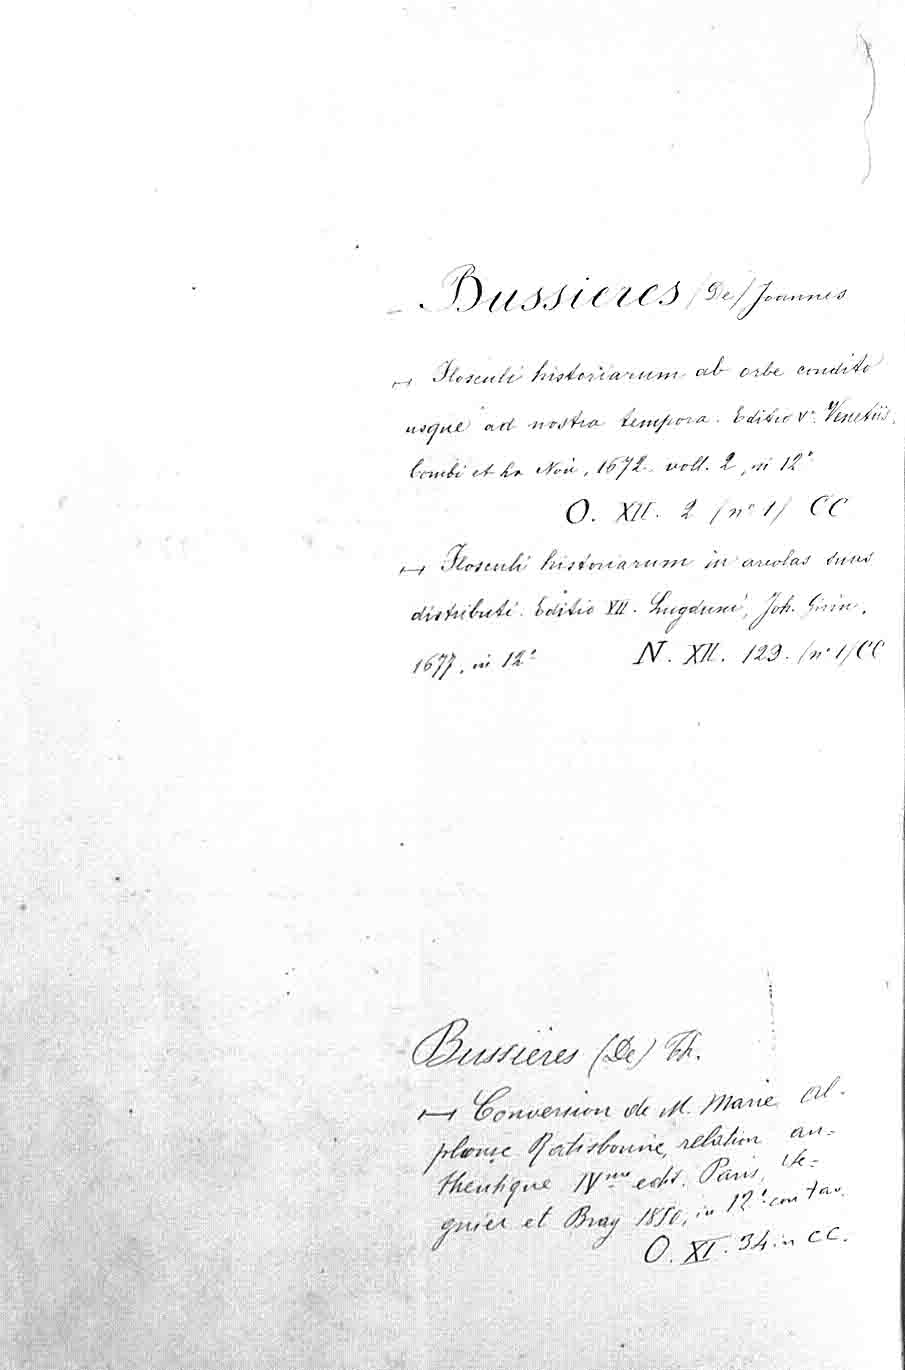 Bussieres (De) Joannes
Flosculi historiarum ab orbe condito
usque ad nostra tempora. Editio Vª. Venetiis,
Combi et La Noù, 1672. voll. 2, in 12°
O. XII. 2 (n° 1) CC
Flosculi historiarum in areolas suas
distributi. Editio XII. Lugduni, Joh. Girin,
1677, in 12° N. XII. 123. (n° 1) CC
Bussières (De) Th.
Conversion de M. Marie Al-
phonse Ratisbonne, relation au=
thentique IVme edit. Paris,
gnier et Bray 1850, in 12° con tav.
O. XI. 34. in CC.